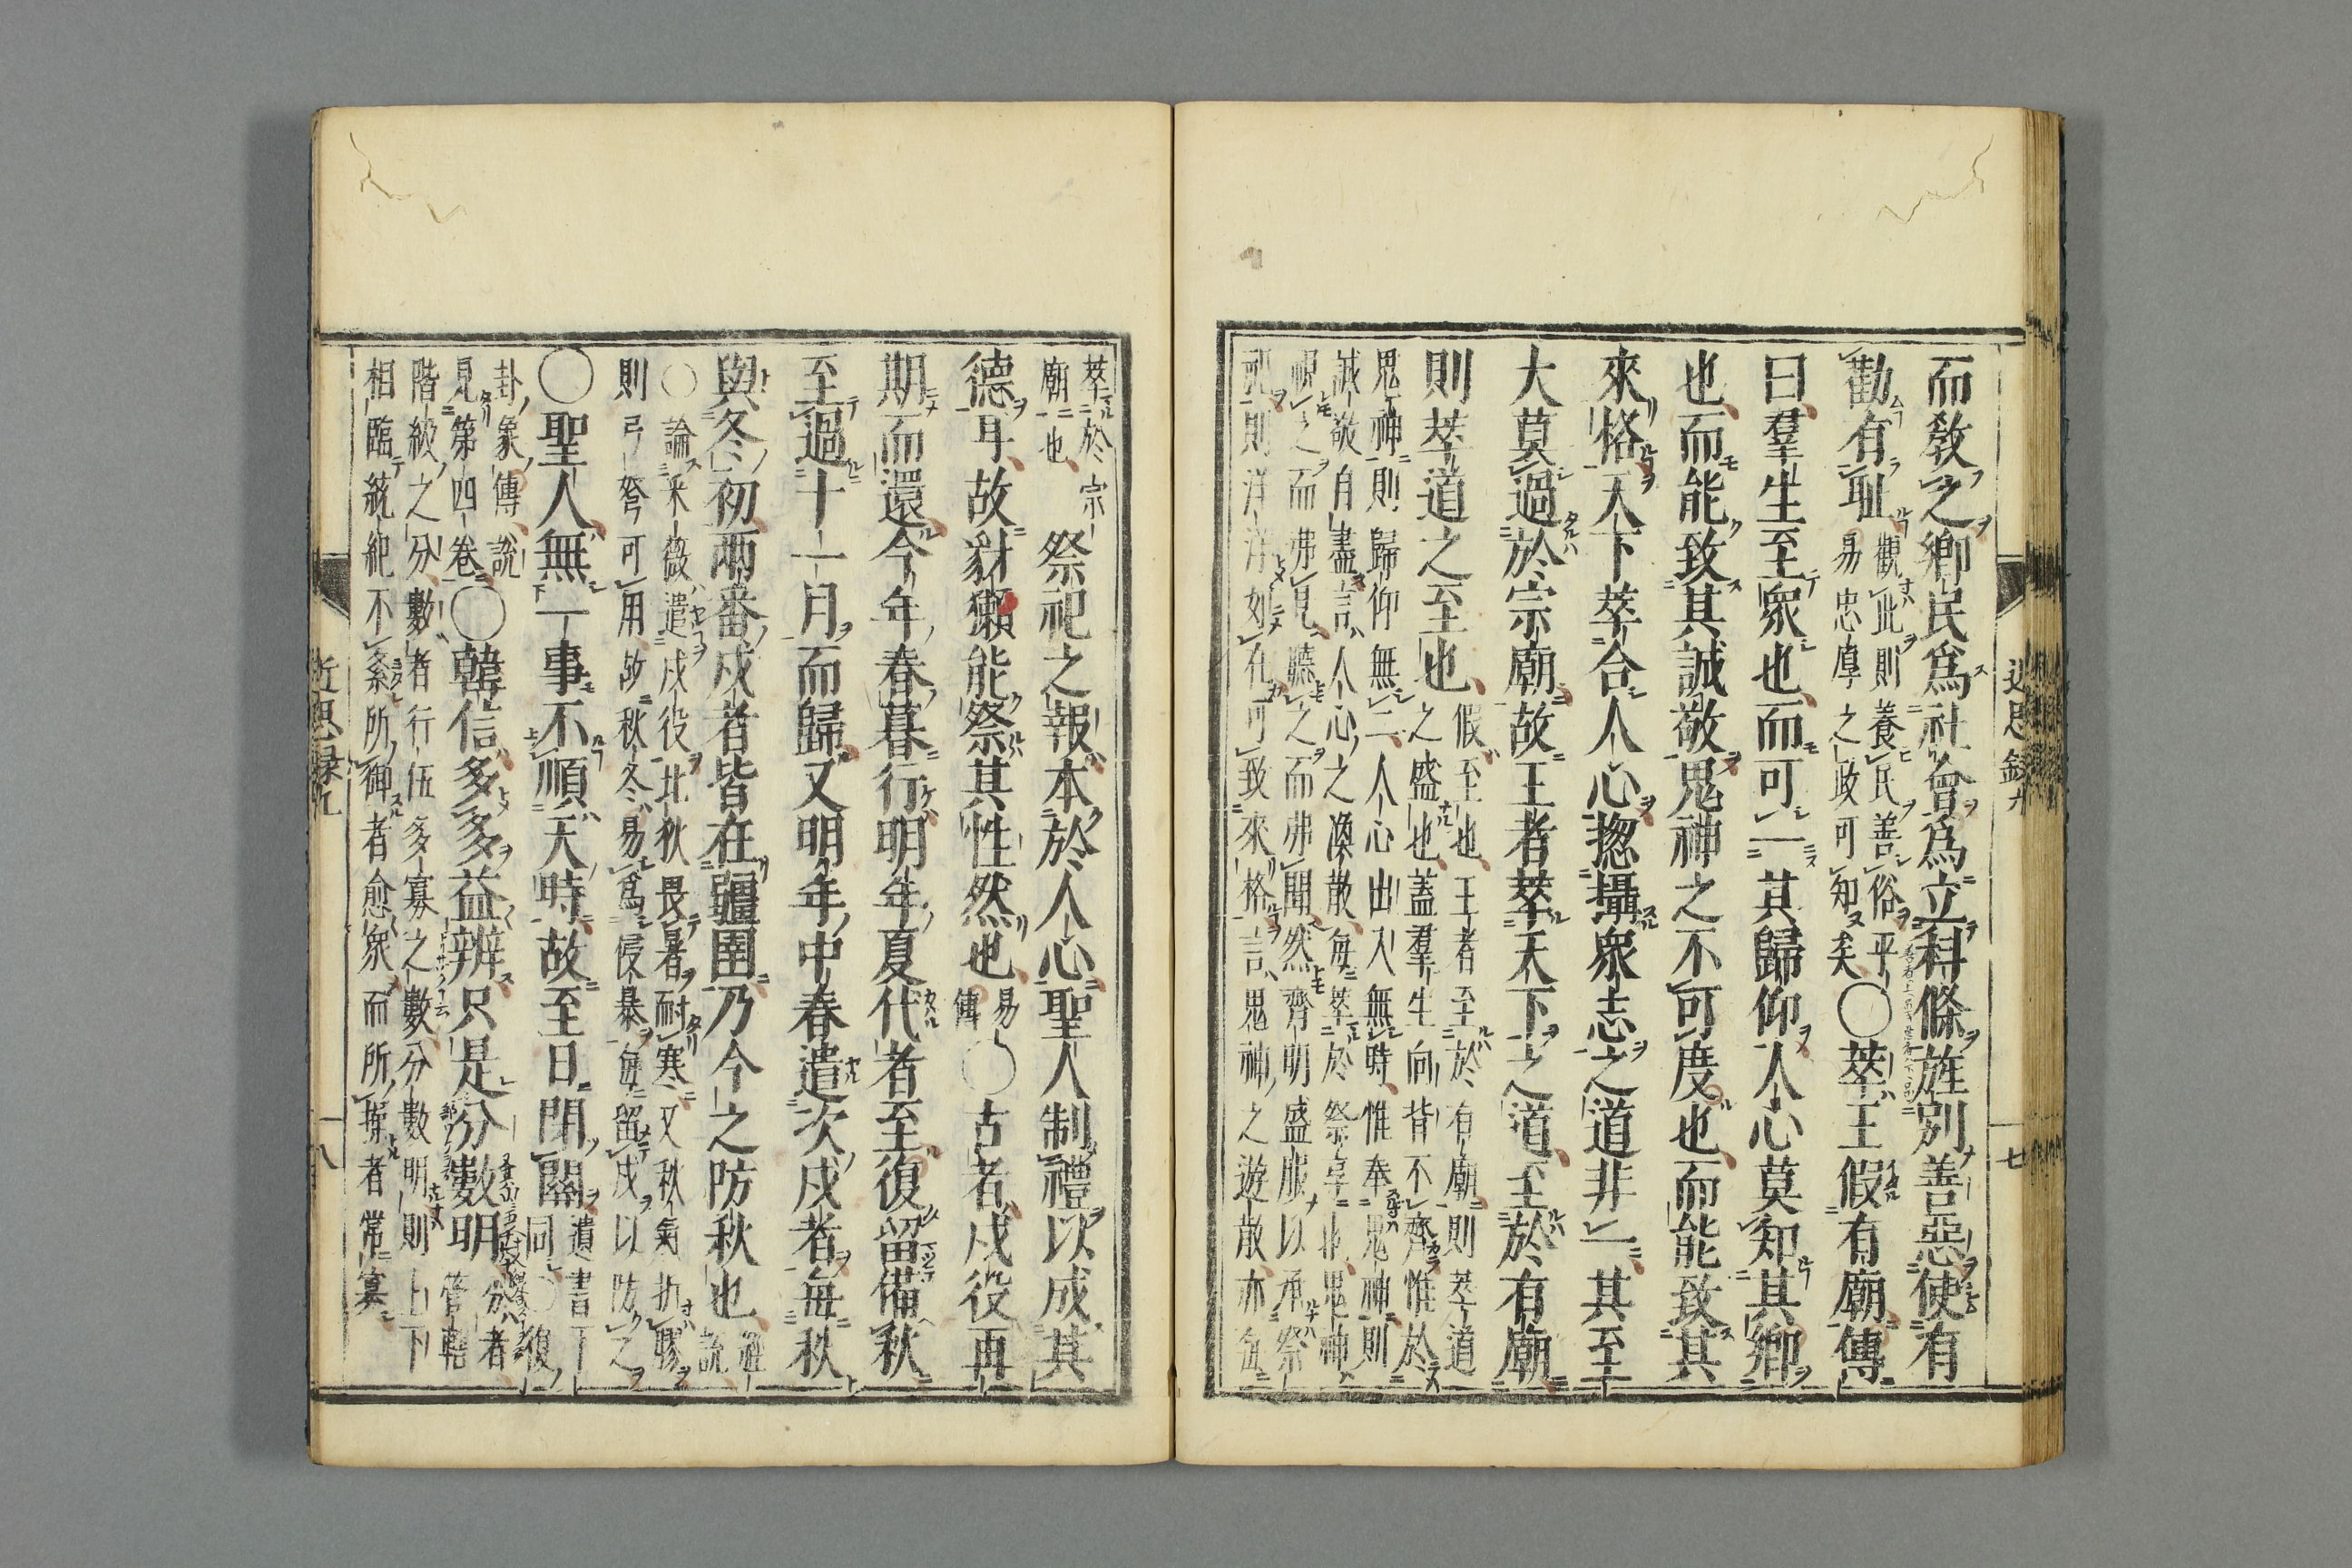 而敎之鄕民爲社會爲立科條旌別善惡使有
勸有恥
觀此則養民善俗平
易忠厚之政可知矣
○萃王假有廟傳
曰羣生至衆也而可一其歸仰人心莫知其鄕
也而能致其誠敬鬼神之不可度也而能致其
來格天下萃合人心揔攝衆志之道非一其至
大莫過於宗廟故王者萃天下之道至於有廟
則萃道之至也
假至也王者至於有廟則萃道
之盛也蓋羣生向背不齊惟於
鬼神則歸仰無二人心出入無時惟奉鬼神則
誠敬自盡言人心之渙散每萃於祭享也鬼神
視之而弗見聽之而弗聞然齊明盛服以承祭
祀則洋洋如在可致來格言鬼神之遊散亦每
萃於宗
廟也
祭祀之報本於人心聖人制禮以成其
德耳故豺獺能祭其性然也
易
傳
○古者戍役再
期而還今年春暮行明年夏代者至復留備秋
至過十一月而歸又明年中春遣次戍者每秋
與冬初兩番戍者皆在疆圉乃今之防秋也
經
說
○論采薇遣戍役北狄畏暑耐寒又秋氣折膠
則弓弩可用故秋冬易爲侵暴每留戍以防之
○聖人無一事不順天時故至日閉關
遺書下
同○復
卦象傳說
見第四卷
○韓信多多益辨只是分數明
分者
管轄
階級之分數者行伍多寡之數分數明則上下
相臨統紀不紊所御者愈衆而所操者常寡
近思錄九
十七
近思錄九
十八